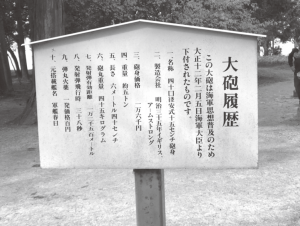 大砲履歴
この大砲は海軍思想普及のため
大正十二年二月五日海軍大臣より
下付されたものです。
一、名称 四十口径安式十五センチ砲身
二、製造会社 明治二十五年イギリス
アームストロング
三、砲身価格 一万六千円
四、重量 約五トン
五、長さ 六メートル四十センチ
六、砲丸重量 四十五キログラム
七、発射弾有効距離
八、発射弾飛行時 二十八秒
九、弾丸火薬 一発価格百円
十、元搭載艦名 軍艦春日